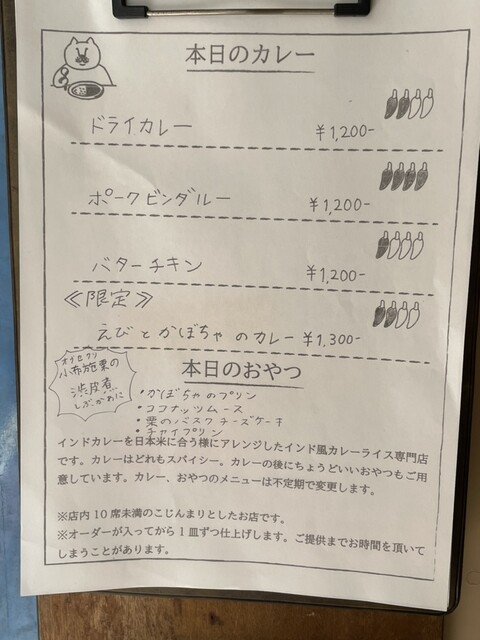 本日のカレー
ドライカレー ¥1,200-
ポークビンダルー ¥1,200-
バターチキン ¥1,200-
≪限定≫
えびとかぼちゃのカレー ¥1,300-
本日のおやつ
小布施栗の
渋皮煮
しぶかわに
・かぼちゃのプリン
・ココナッツムース
・栗のバスクチーズケーキ
・チャイプリン
インドカレーを日本米に合う様にアレンジしたインド風カレーライス専門店
です。カレーはどれもスパイシー。カレーの後にちょうどいいおやつもご用
意しています。カレー、おやつのメニューは不定期で変更します。
※店内10席未満のこじんまりとしたお店です。
※オーダーが入ってから1皿ずつ仕上げします。ご提供までお時間を頂いて
しまうことがあります。